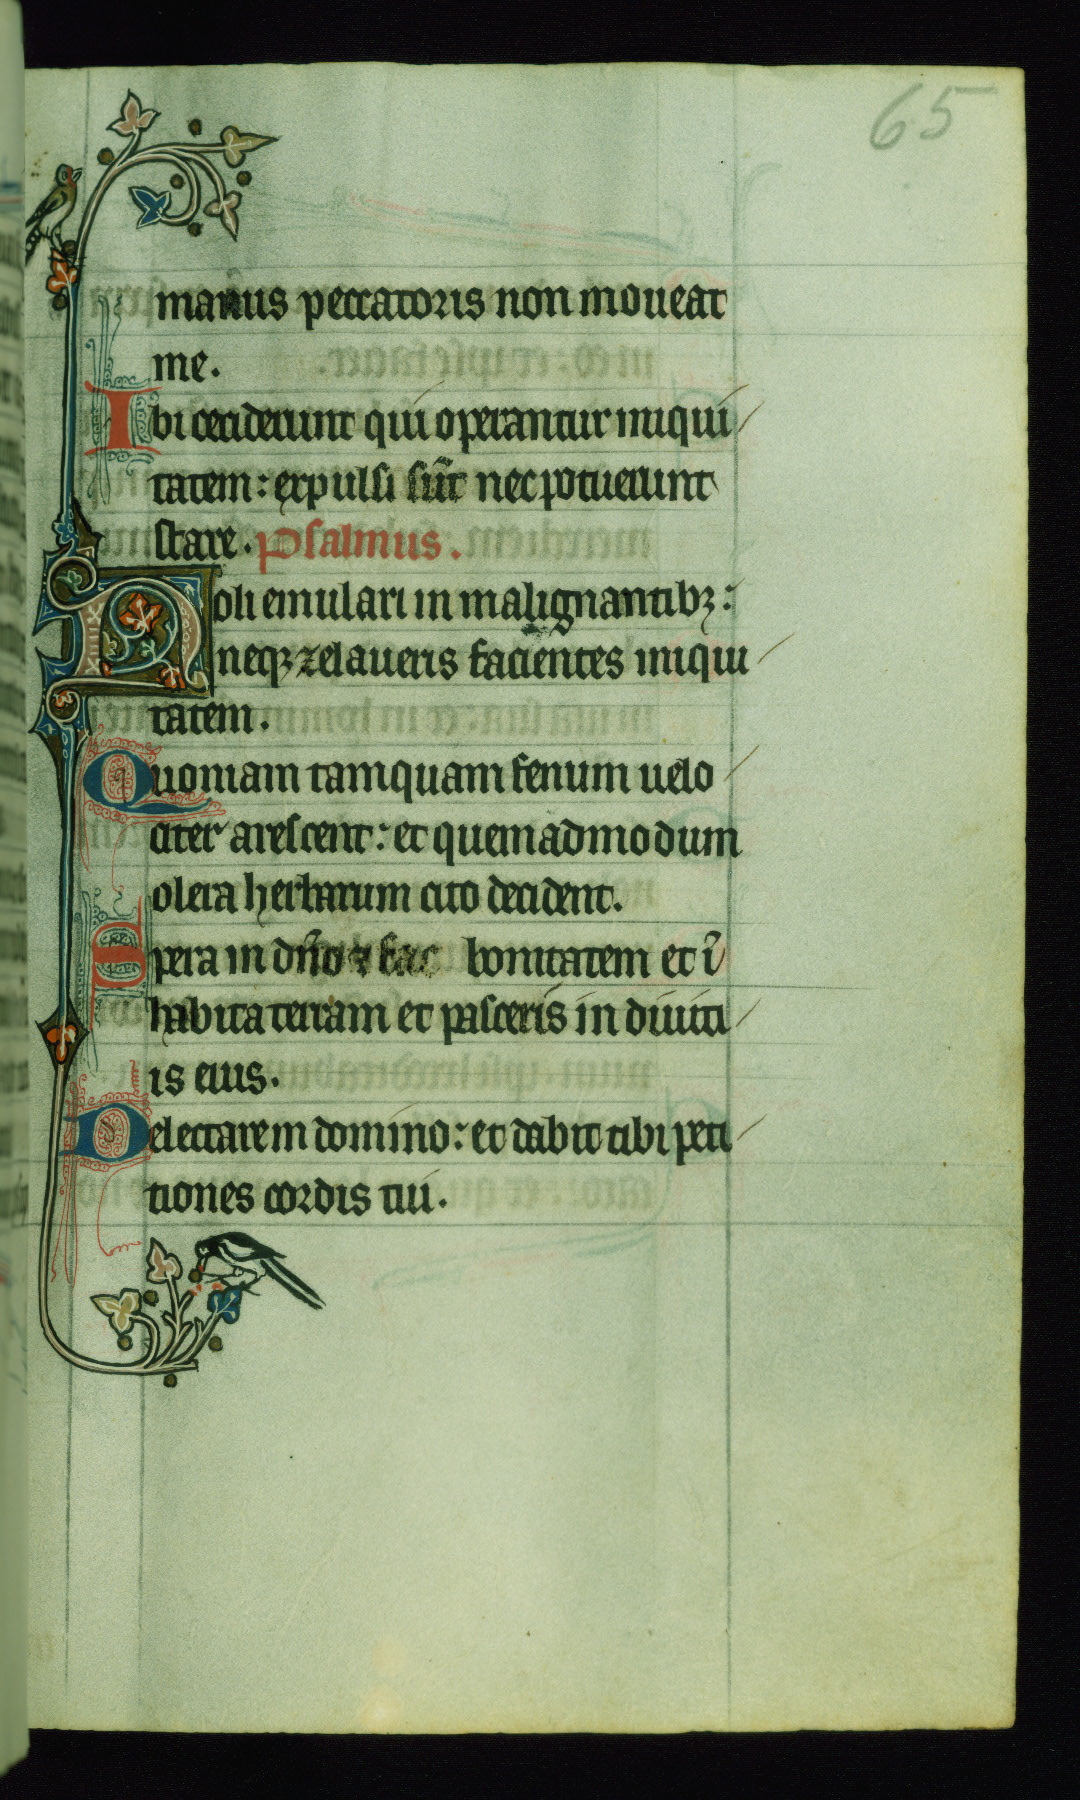 65
manus peccatoris non moueat
me.
Ibi ceciderunt qui operantur iniqui
tatem: expulsi sūt nec potuerunt
stare. Psalmus.
Noli emulari in malignantibꝫ:
neqꝫ zelaueris facientes iniqui
tatem.
Quoniam tamquam fenum uelo
citer arescent: et quemadmodum
olera herbarum cito decident.
Spera in dn̄o ⁊ fac bonitatem et ī
habita terram et pasceris in diuiti
is eius.
Delectarem domino: et dabit tibi peti
tiones cordis tui.